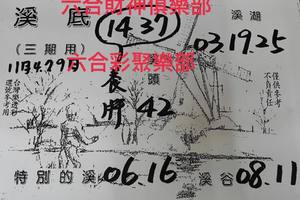 六合財神俱樂部
溪底 14 37 溪湖
(三期用) 03.19.25
六合彩聚樂部
11月4.7.9日
台灣樂透彩
選號參考用
長牌 頭 42
僅供參考
自負責任
特別的溪 06.16 溪谷 08.11